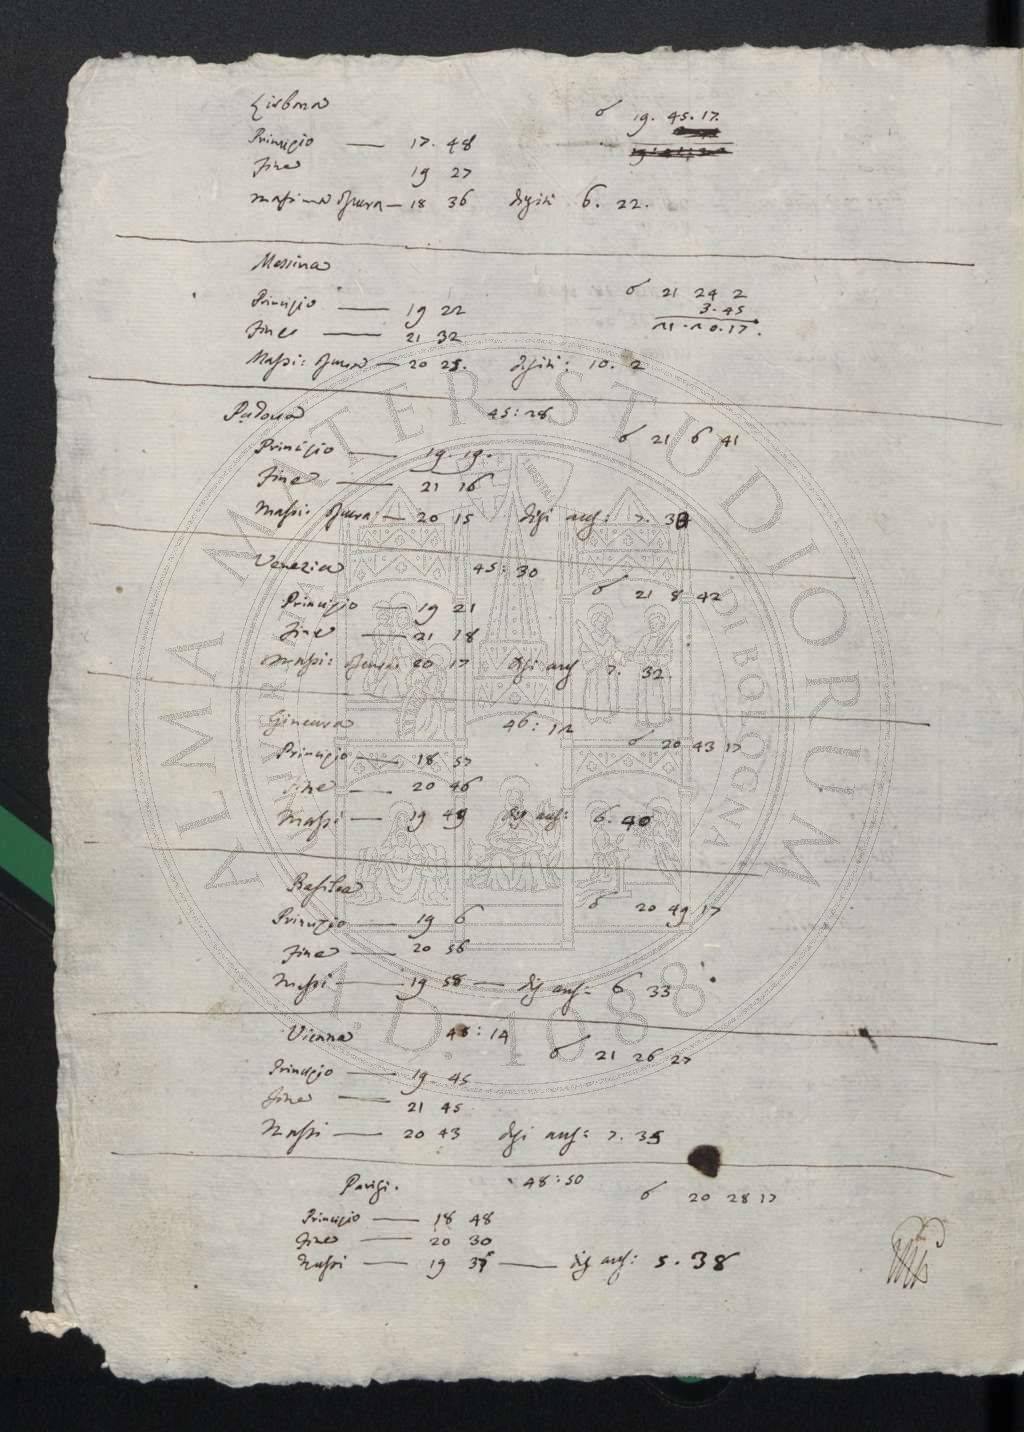 Lisbona ☌ 19. 45. 17.
Principio — 17. 48
Fine 19 27
Massima oscura — 18 36 digiti 6. 22.
Messina ☌ 21 24 2
Principio — 19 22 3. 45
Fine — 21 32 21. 20. 17.
Massi: oscura — 20 25. digiti: 10. 2
Padova 45: 28 ☌ 21 6 41
Principio — 19. 19.
Fine — 21 16
Massi: oscura: — 20 15 digi 7.
Venezia 45: 30 ☌ 21 8 42
Principio — 19 21
Fine — 21 18
Massi: oscura: 20 17 digi 7. 32.
Gineura 46: 12 ☌ 20 43 17
Principio — 18 57
Fine — 20 46
Massi — 19 49 dig 6. 40
Basilea ☌ 20 49 17
Principio — 19 6
Fine — 20 56
Massi — 19 58 — dig 6 33
Vienna 48: 14 ☌ 21 26 27
Principio — 19 45
Fine — 21 45
Massi — 20 43 digi 7. 35
Parigi. 48: 50 ☌ 20 28 17
Principio — 18 48
Fine — 20 30
Massi — 19 — dig 5. 38
ALMA MATER STUDIORUM
A.D. 1088
UNIVERSITÀ DI BOLOGNA